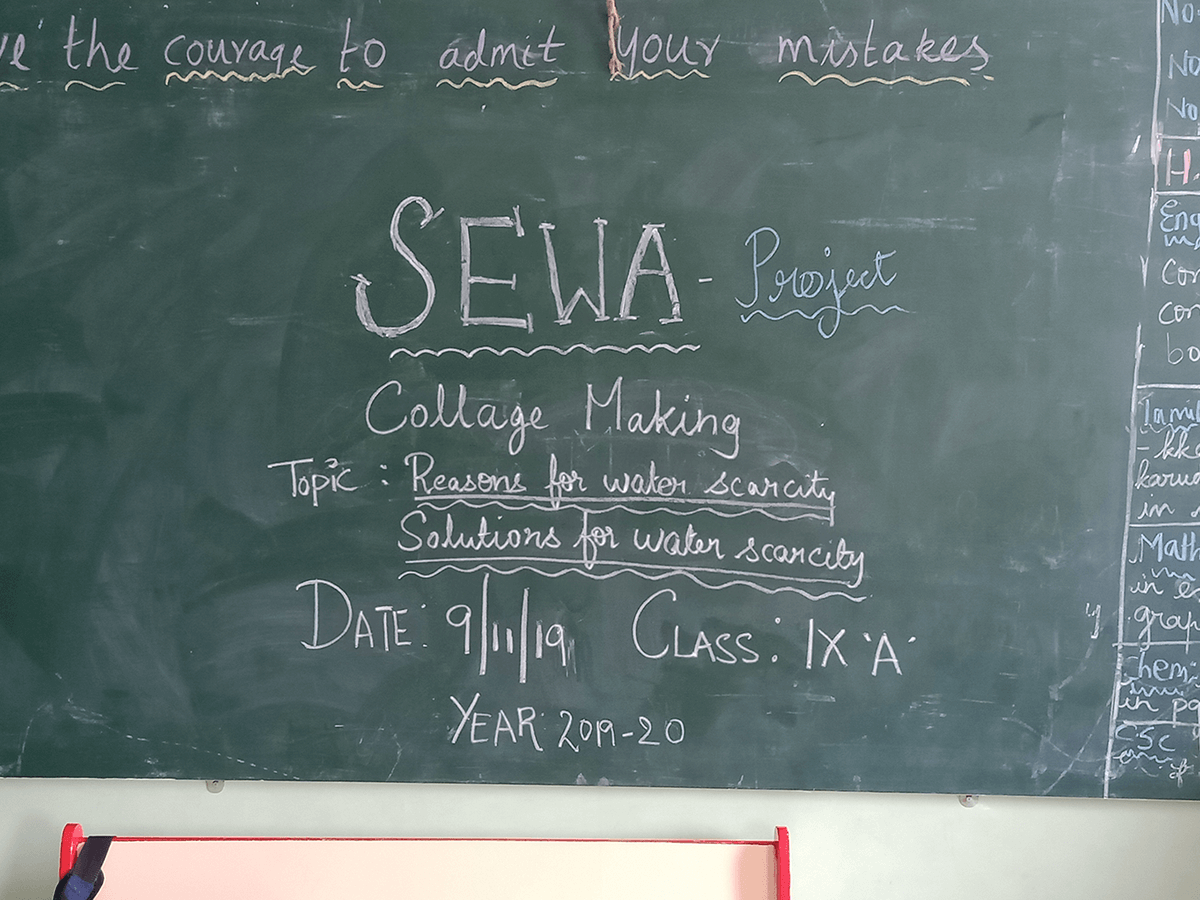 the courage to admit your mistakes
SEWA - Project
Collage Making
Topic : Reasons for water scarcity
Solutions for water scarcity
DATE: 9/11/19 CLASS: IX 'A'
YEAR 2019-20
No
No
H.
Eng
Tamil
karu
in
Math
in
grap
Chem:
in po
CSC